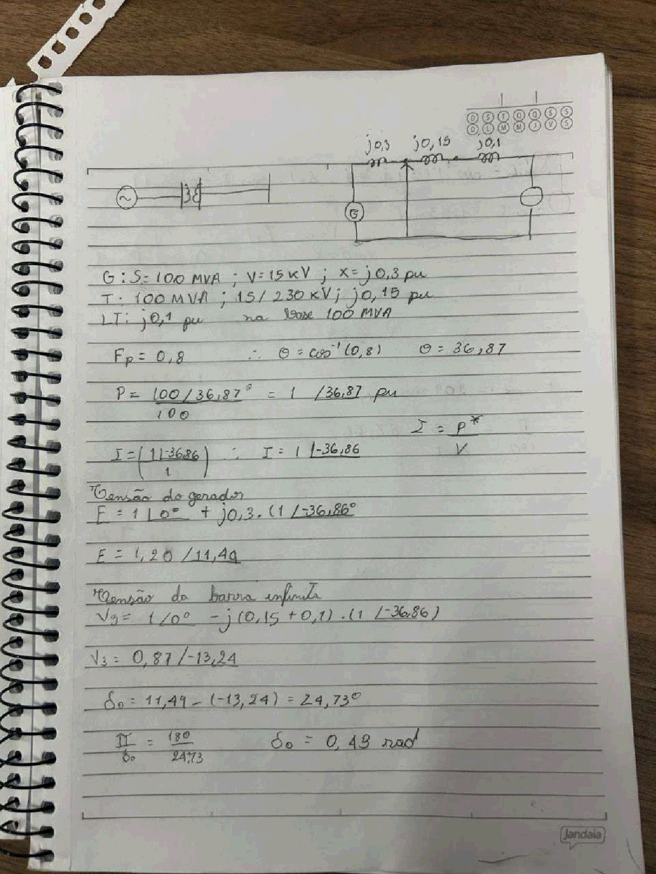 D S T Q Q S S
D L M M J V S
j0,3 j0,15 j0,1
G
G: S=100 MVA ; V=15 kV ; X=j0,3 pu
T: 100 MVA ; 15/230 kV; j0,15 pu
LT: j0,1 pu na base 100 MVA
Fp = 0,8 ∴ θ = cos⁻¹(0,8) θ = 36,87
P = 100 /36,87° = 1 /36,87 pu
100
I = P*
V
I = (1 /-36,86) ∴ I = 1 /-36,86
1
Tensão do gerador
E = 1 /0° + j0,3 . (1 /-36,86°
E = 1,20 /11,49
Tensão da barra infinita
V3 = 1 /0° - j(0,15 + 0,1) . (1 /-36,86)
V3 = 0,87 /-13,24
δ0 = 11,49 - (-13,24) = 24,73°
π = 180 δ0 = 0,43 rad
δ0 24,73
jandaia